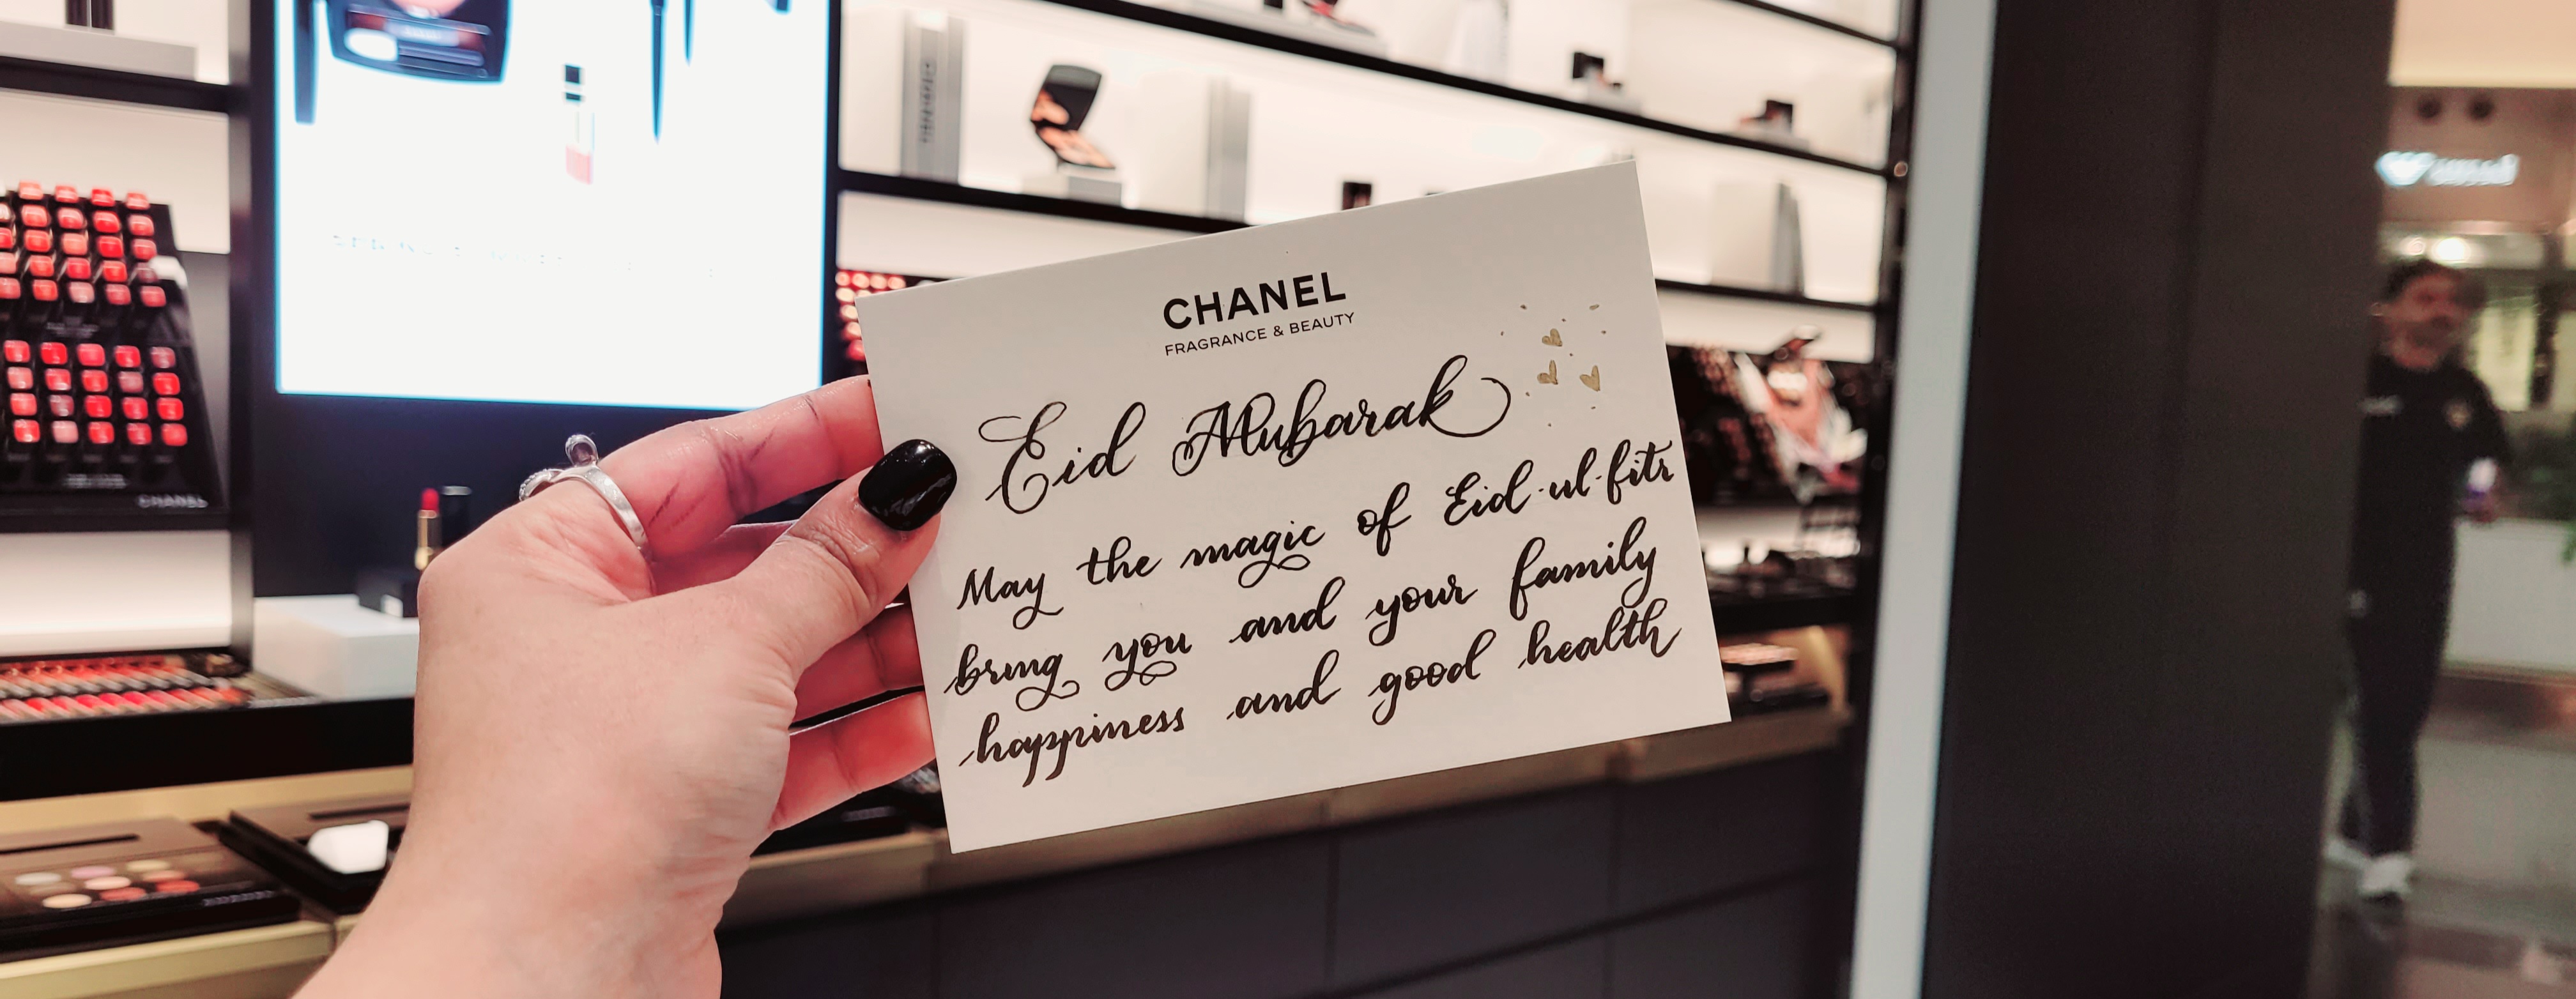 CHANEL
FRAGRANCE & BEAUTY
Eid Mubarak
May the magic of Eid-ul-fitr
bring you and your family
happiness and good health
CHANEL
CHANEL